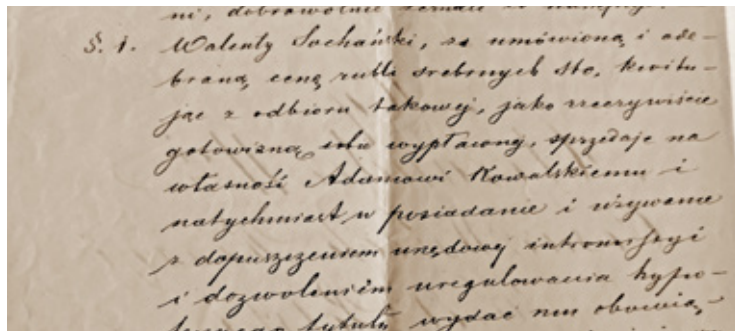 ni, dobrowolnie zeznali co następuje:
§. 1. Walenty Sochański, za umówioną i ode-
braną cenę rubli srebrnych sto, kwitu-
jąc z odbioru takowej, jako rzeczywiście
gotowizną mu wypłaconą, sprzedaje na
własność Adamowi Kowalskiemu i
natychmiast w posiadanie i używanie
z dopuszczeniem urzędowej intromissyi
i dozwoleniem uregulowania hypo-
tytułu wydać mu obowią-